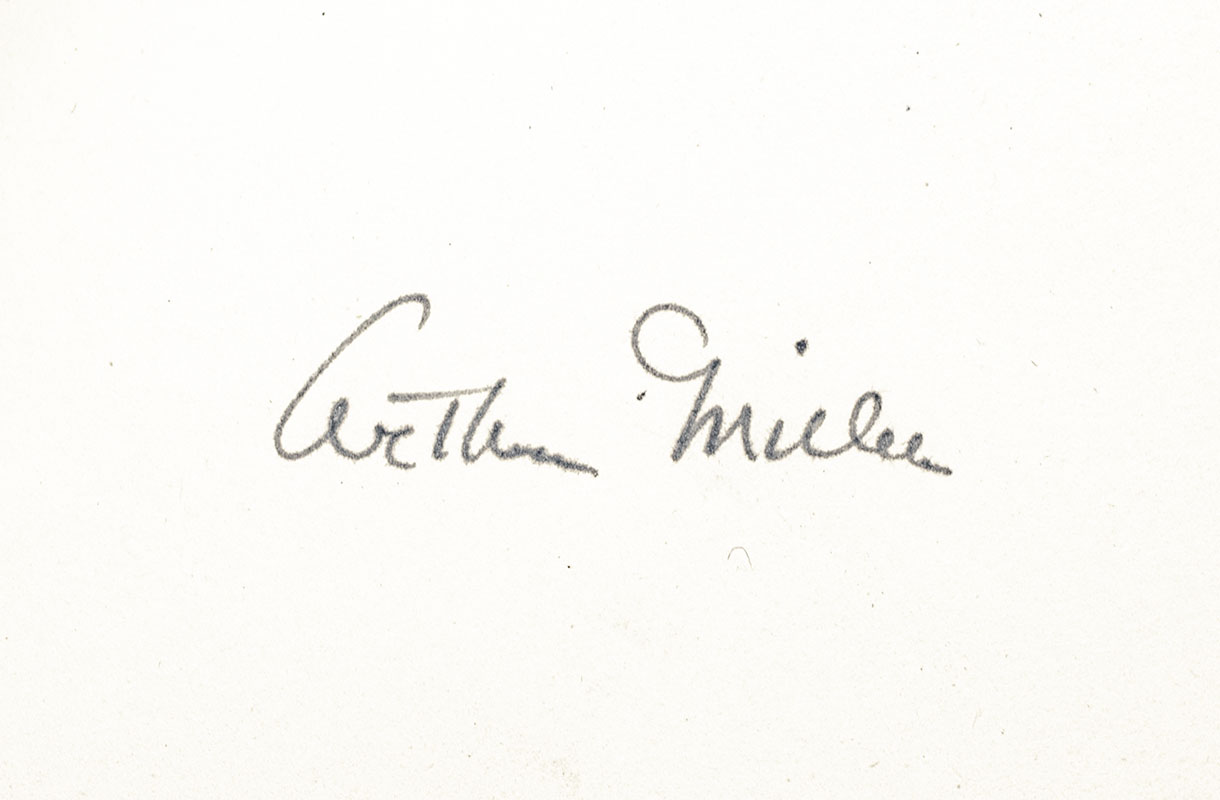 Arthur Miller